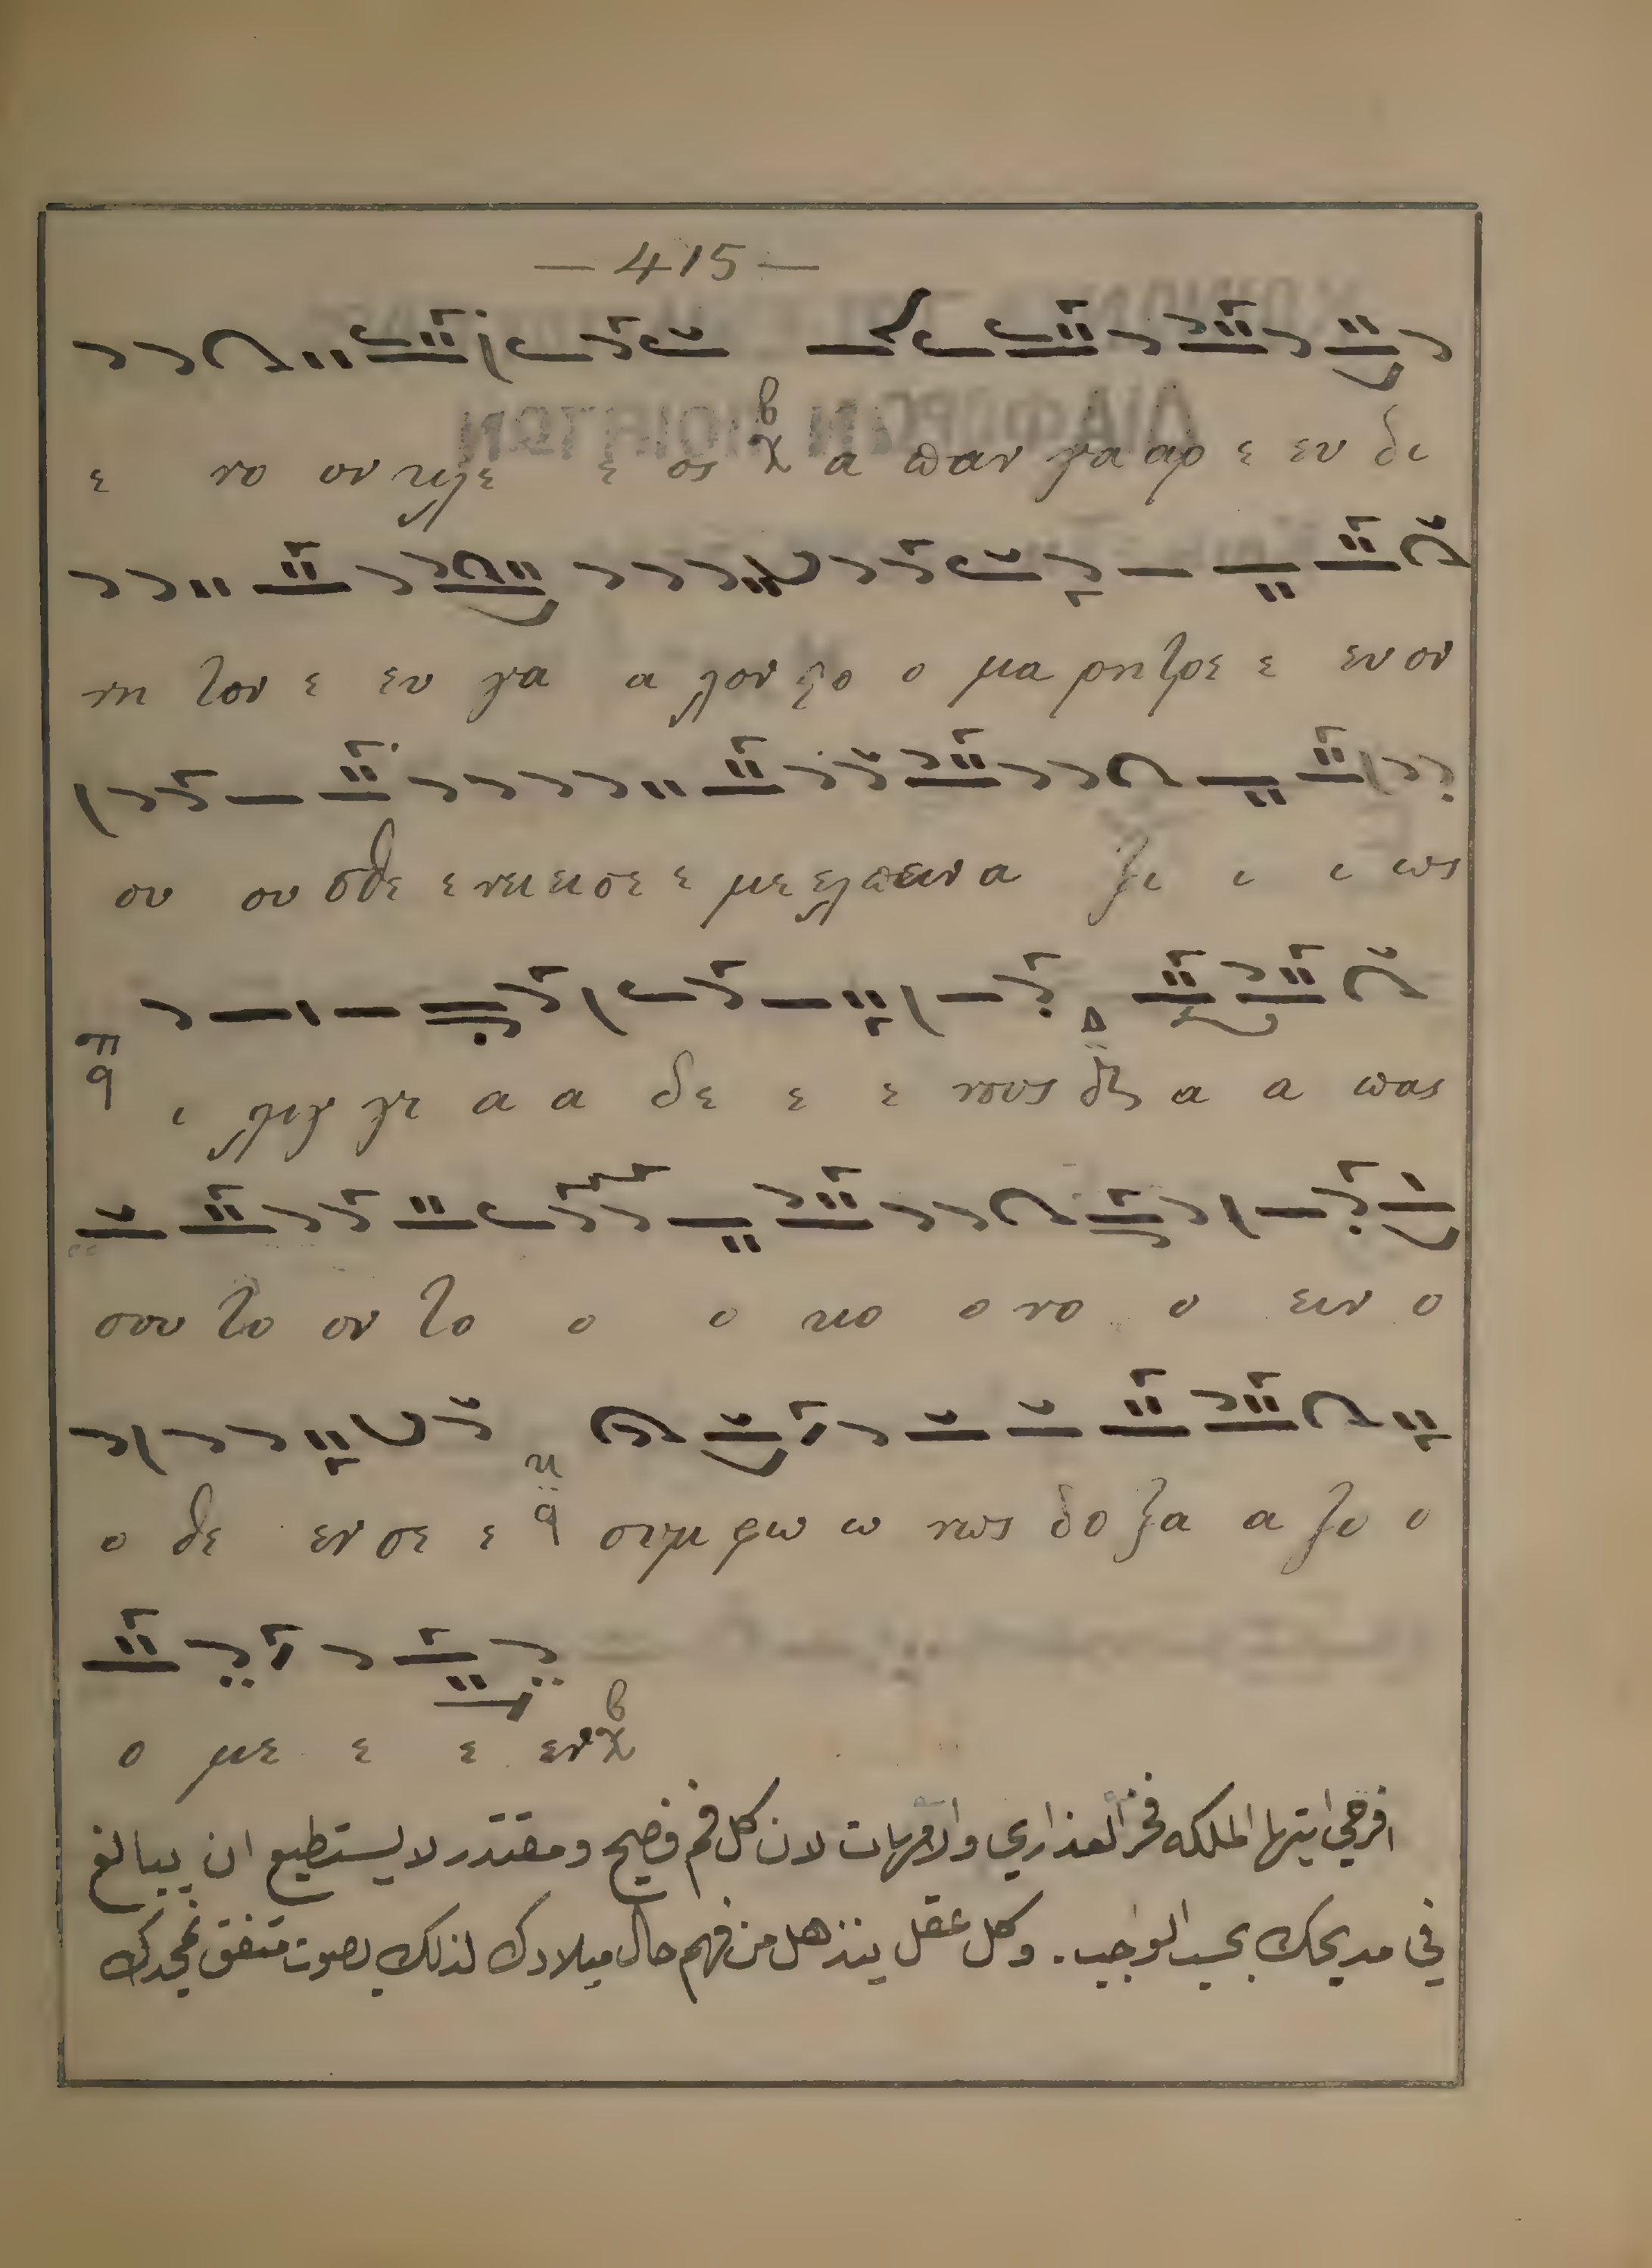 — 415 —
ε νο ον κλε ε ος χ β α παν γα αρ ε ευ δι
νη τον ε ευ γα α λον ξο ο μα ρητρε ε ευ ον
ου ου σθε ε νει εισε ε με ελπειν α ξι ι ι ως
ι λιγ γι α α δε ε ε νους δ α α πας
σου το ον το ο ο κο ο νο ο ειν ο
ο θε εν σε ε q συμ φω ω νως δο ξα α ζο ο
ο με ε ε εν χ β
افرحي ايتها الملكه فخر العذاري والامهات لان كل فم فصيح ومقتدر لا يستطيع ان يبالغ
في مديحك بحسب الواجب. وكل عقل ينذهل من فهم حال ميلادك لذلك بصوت متفق نمجدك